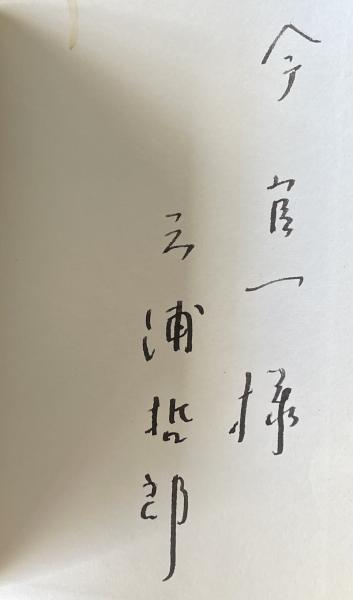 今官一様
三浦哲郎